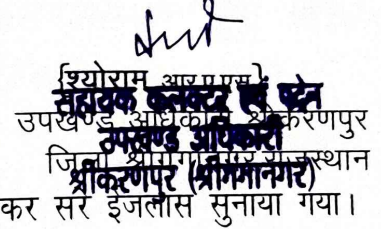 {श्योराम आर.ए.एस.}
सहायक कलक्टर एवं पदेन
उपखण्ड अधिकारी श्रीकरणपुर
उपखण्ड अधिकारी
जिला श्रीगंगानगर राजस्थान
श्रीकरणपुर (श्रीगंगानगर)
कर सरे इजलास सुनाया गया।